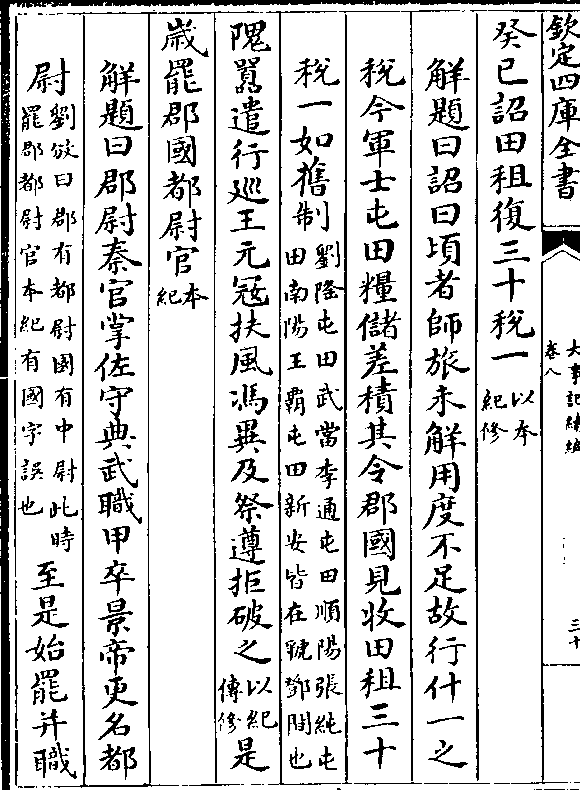 欽定四庫全書
大事記續編
卷八
三十
癸巳詔田租復三十稅一以本紀修
解題曰詔曰頃者師旅未解用度不足故行什一之
稅今軍士屯田糧儲差積其令郡國見收田租三十
稅一如舊制劉隆屯田武當李通屯田順陽張純屯田南陽王霸屯田新安皆在虢鄧間也
隗囂遣行巡王元冦扶風馮異及祭遵拒破之以紀傳修是
歲罷郡國都尉官本紀
解題曰郡尉秦官掌佐守典武職甲卒景帝更名都
尉劉攽曰郡有都尉國有中尉此時罷郡都尉官本紀有國字誤也至是始罷并職